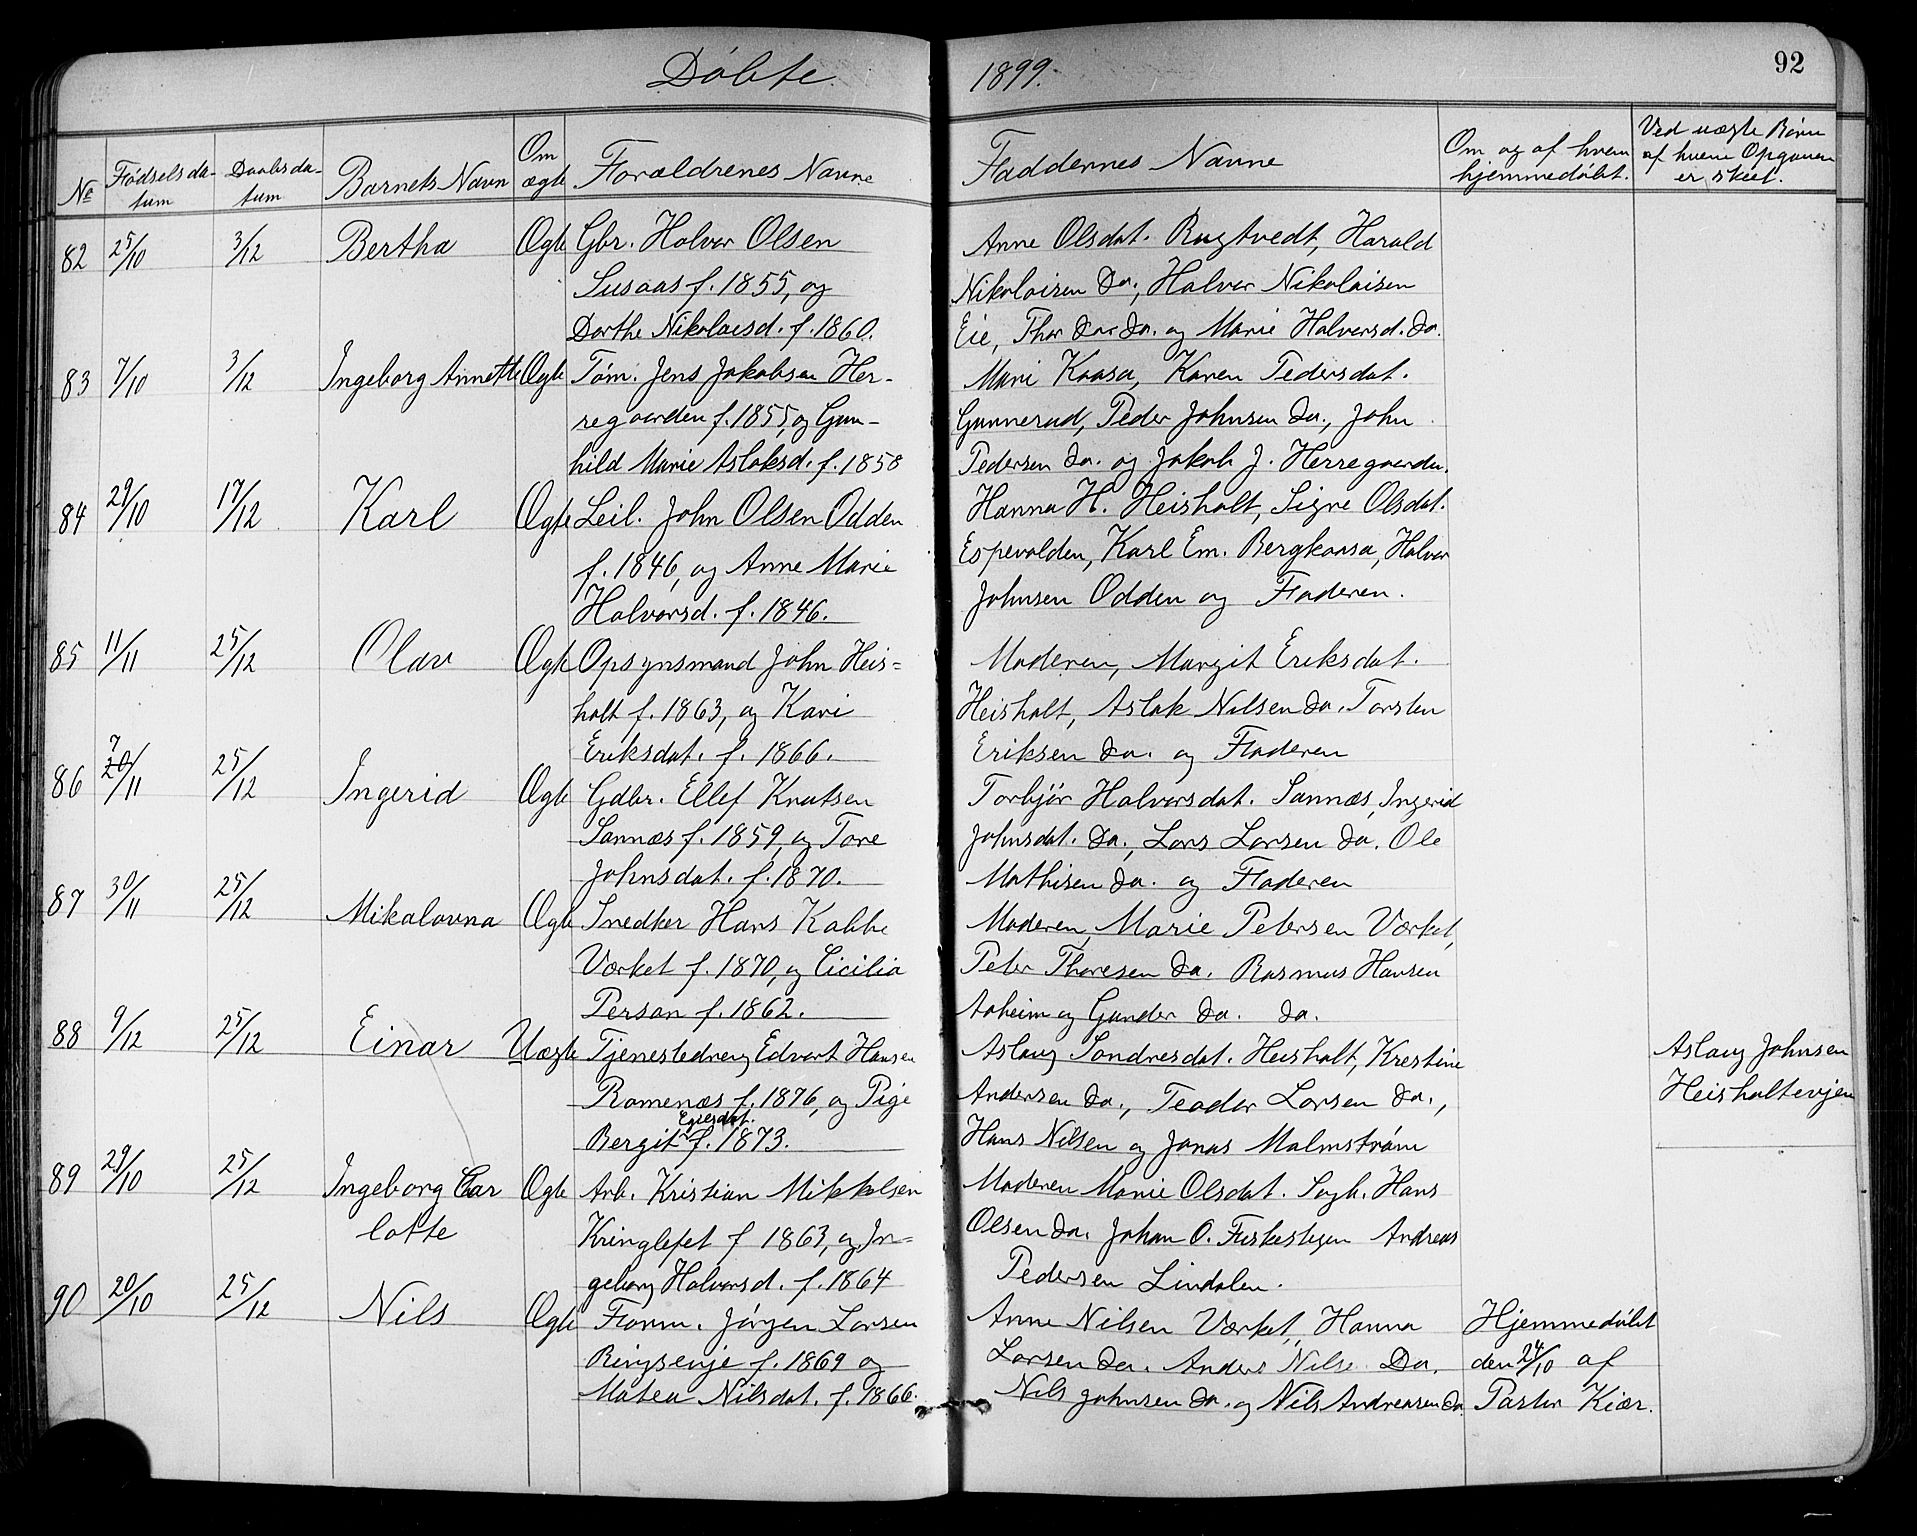 Døbte 1899. 92
№ Fødselsda-tum Daabsda-tum Barnets Navn Om ægte Forældrenes Navne Faddernes Navne Om og af hvem hjemmedøbt. Ved uægte Børn af hvem Opgaven er skeet.
82 25/10 3/12 Bertha Ægte Gbr. Halvor Olsen Anne Olsdat. Rugtvedt, Harald
Susaas f. 1855, og Nikolaisen do., Halvor Nikolaisen
Dorthe Nikolaisd. f. 1860. Eie, Thor do. do. og Marie Halvorsd. do.
83 7/10 3/12 Ingeborg Annette Ægte Tøm. Jens Jakobsen Her- Mari Kaasa, Karen Pedersdat.
regaarden f. 1855, og Gun- Gunnerud, Peder Johnsen do., John
hild Marie Aslaksd. f. 1858 Pedersen do. og Jakob J. Herregaarden.
84 29/10 17/12 Karl Ægte Leil. John Olsen Odden Hanna H. Heisholt, Signe Olsdat.
f. 1846, og Anne Marie Espevolden, Karl Em. Bergkaasa, Halvor
Halvorsd. f. 1846. Johnsen Odden og Faderen.
85 11/11 25/12 Olav Ægte Opsynsmand John Heis= Moderen, Margit Eriksdat.
holt f. 1863, og Kari Heisholt, Aslak Nilsen do. Torsten
Eriksdat. f. 1866. Eriksen do. og Faderen
86 7 20/11 25/12 Ingerid Ægte Gdbr. Ellef Knutsen Torbjør Halvorsdat. Sannæs, Ingerid
Sannæs f. 1859, og Tore Johnsdat. do., Lars Larsen do. Ole
Johnsdat. f. 1870. Mathisen do. og Faderen
87 30/11 25/12 Mikalovna Ægte Snedker Hans Kabbe Moderen, Marie Petersen Værket,
Værket f. 1870, og Cicilia Peter Thoresen do. Rasmus Hansen
Persan f. 1862. Aaheim og Gunder do. do.
88 9/12 25/12 Einar Uægte Tjenestedreng Edvart Hansen Aslaug Sondresdat. Heisholt, Kristine Aslaug Johnsen
Romenæs f. 1876, og Pige Andersen do., Teodor Larsen do., Heisholtevjen
Bergit Egilsdat. f. 1873. Hans Nilsen og Jonas Malmstrøm
89 29/10 25/12 Ingeborg Car Ægte Arb. Kristian Mikkelsen Moderen Marie Olsdat. Sagb. Hans
lotte Kringlefet f 1863, og In= Olsen do. Johan O. Fiskestegen Andreas
geborg Halvorsd. f. 1864 Pedersen Lindalen.
90 20/10 25/12 Nils Ægte Form. Jørgen Larsen Anne Nilsen Værket, Hanna Hjemmedøbt
Ringsevje f. 1869 og Larsen do. Anders Nilse Do. den 24/10 af
Matea Nilsdat. f. 1866. Nils Johnsen do. og Nils Andreasen do. Pastor Kiær.